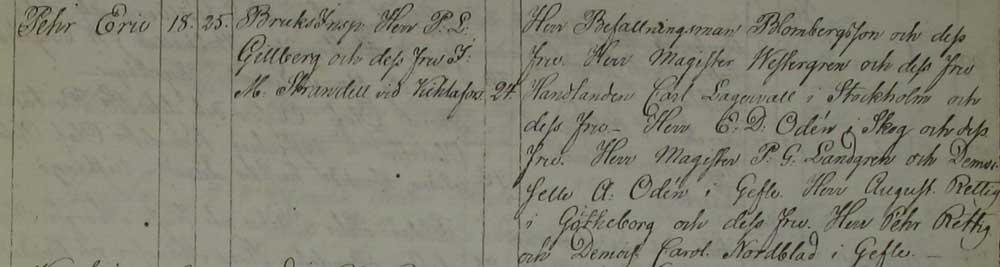 Pehr Eric 18. 25. Bruks Insp. Herr P. L.
Gillberg och dess Fru F.
M. Strandell vid Vicklasjoe. 24.
Herr Befallningsman Blombergsson och dess
Fru. Herr Magister Westergren och dess Fru
Handlanden Carl Lagervall i Stockholm och
dess Fru. – Herr E. D. Odén i Skog och dess
Fru. Herr Magister P. G. Landgren och Demoi-
selle A. Odén i Gefle. Herr August. Rettig
i Götheborg och dess Fru. Herr Pehr Rettig
och Demois. Carol. Nordblad i Gefle. –